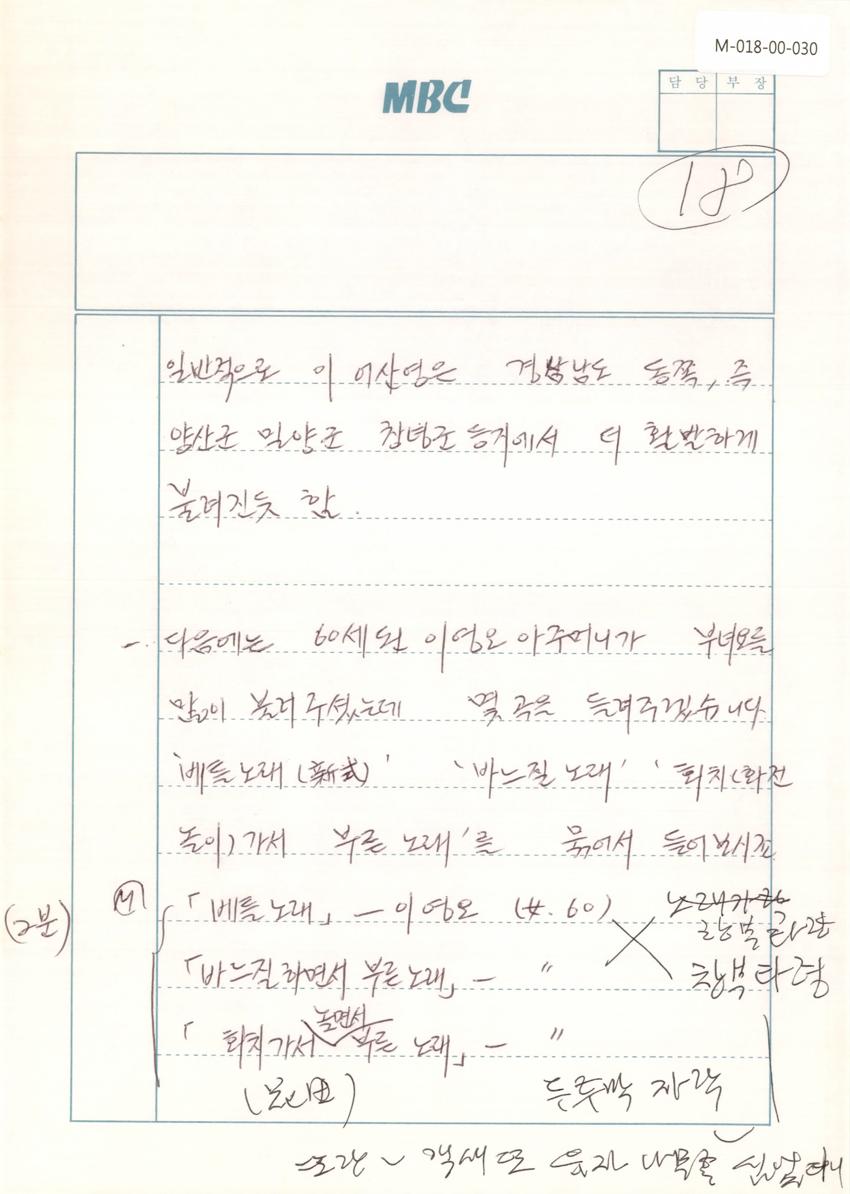 M-018-00-030
MBC
담 당 부 장
18
일반적으로 이 어산영은 경상남도 동쪽, 즉
양산군 밀양군 창녕군 등지에서 더 활발하게
불려진듯 함.
다음에는 60세된 이영오 아주머니가 부녀요를
많이 불러 주셨는데 몇 곡을 들려주겠습니다
'베틀노래(新式)' '바느질 노래' '회치(화전
놀이)가서 부른 노래'를 묶어서 들어보시죠
(2분) M 「베틀노래」 — 이영오 (女. 60)
「바느질하면서 부른노래」 — 〃
창부타령
「회치가서 놀면서 부른 노래」 — 〃
자락